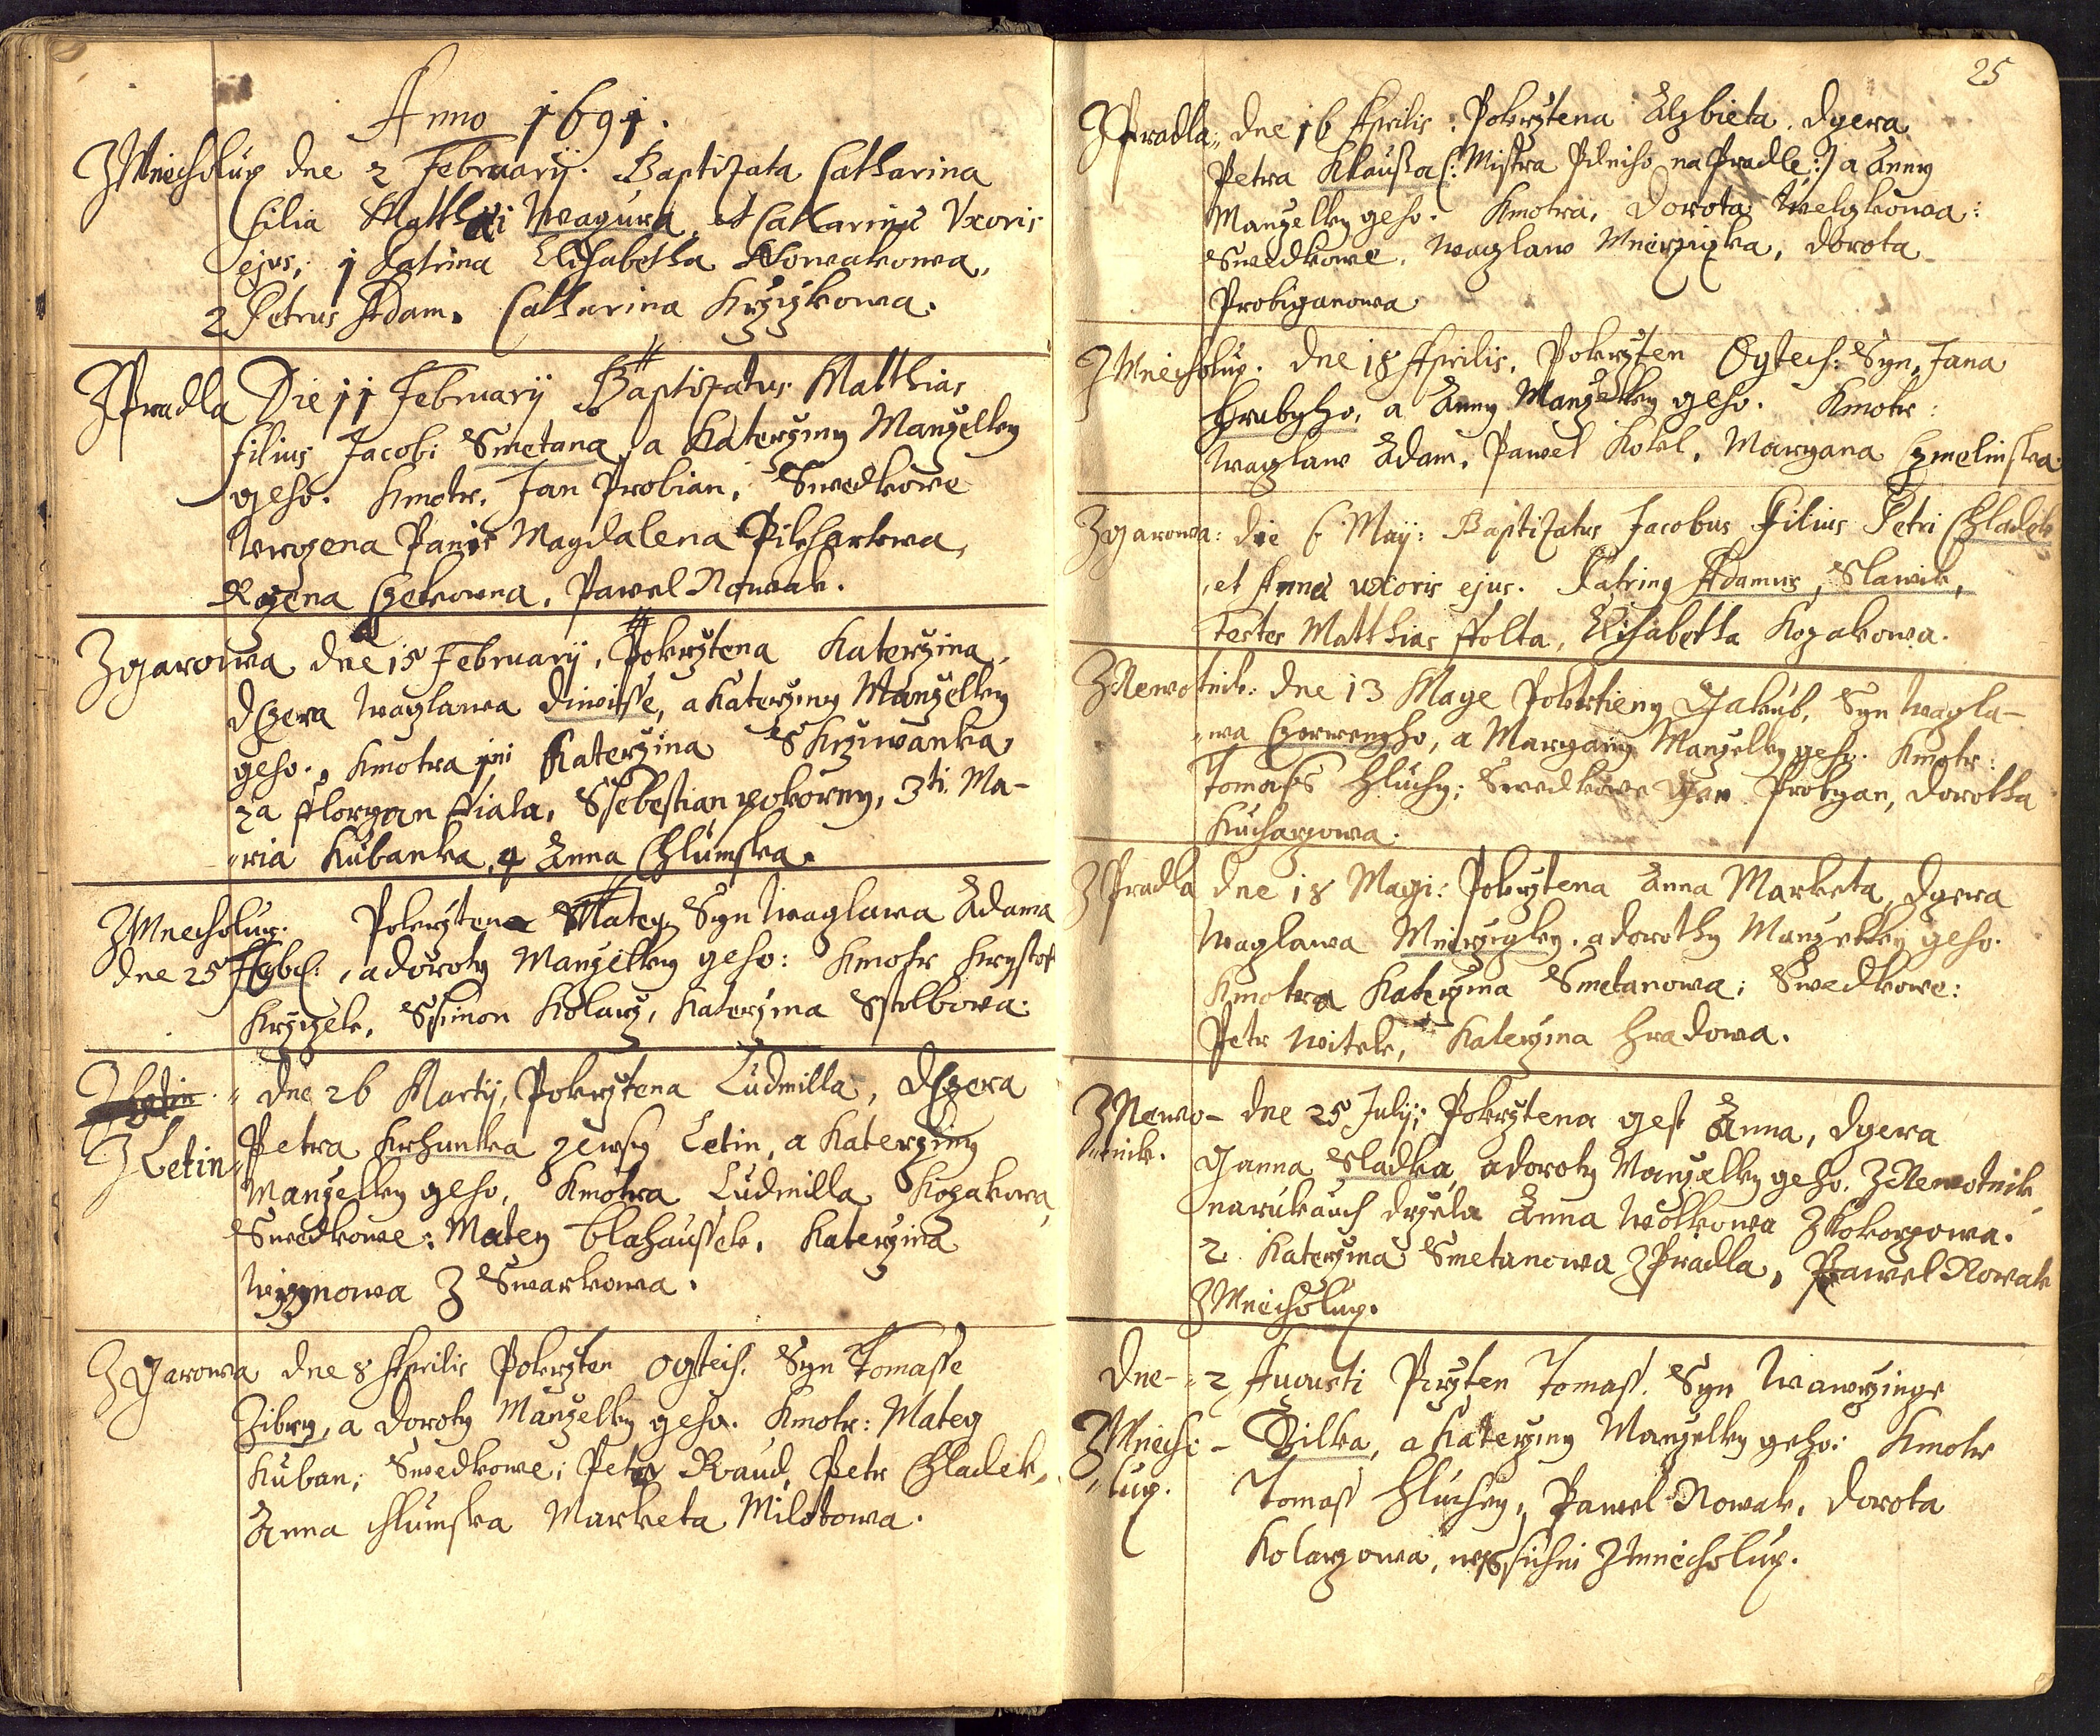 Anno 1691.
Z Mnicholup dne 2 Februarÿ. Baptizata Catharina
filia Matthæi Wagura, et Catharinæ Uxoris
ejus, 1 Patrina Elisabetha Nowakowa,
2 Petrus Adam. Catharina Krziżkowa.
Z Pradla Die 11 Februarÿ Baptizatus Matthias
filius Jacobi Smetana, a Katerziny Manżelky
geho. Kmotr. Jan Probian, Swedkowe
Urozena Panis Magdalena Pilcharkowa,
Rozena Czekowna, Pawel Nowak.
Z Garowa dne 15 Februarÿ, Pokrztena Katerzina,
dczera Waczlawa diwisse, a Katerziny Manżelky
geho., Kmotra pni Katerzina Skrziwanka,
za Floryan fiala, Ssebestian pokorny, 3ti Ma-
ria Kubanka, 4 Anna Chlumska.
Z Mnecholup. Pokrztena Mateg Syn Waczlawa Adama
dne 25 Feb: , a doroty Manżelky geho: Kmotr Krystof
Krziżek, Ssimon Kolarz, Katerzina Sstolbowa.
Z Letin dne 26 Martÿ, Pokrztena Ludmilla, dczera
Z Letin Petra Krhunka zewsy Letin, a Katerziny
Manżelky geho, Kmotra Ludmilla Kozakowa,
Swedkowe: Matey blahaussek, Katerzina
Z Swarkowa.
Z Garowa dne 8 Aprilis Pokrzten Ogtech. Syn Tomasse
Zibry, a doroty Manżelky geho. Kmotr: Mateg
Kuban; Swedkowe; Petr Raud, Petr Chladek,
Anna chlumska Marketa Milotowa.
25
Z Pradla, dne 16 Aprilis: Pokrztena Alzbieta, dczera
Petra Klaussa (: Mistra Pilniho na Pradle :) a Anny
Manzelky geho. Kmotra, Dorota Welczkowa:
Swedkowe, Waczlaw Mnerziczka, dorota
Probiganowa
Z Mnecholup. dne 18 Aprilis, Pokrzten Ogtech: Syn, Jana
hrubyho, a Anny Manżelky geho. Kmotr:
Waczlaw Adam, Pawel Kokl, Maryana Czmelinska
Z Garowa: die 6 Maÿ: Baptizatus Jacobus Filius Petri Chladek
et Annæ uxoris ejus. Patrinq Adamus, Slawik,
Testes Matthias ffolta, Elisabetha Kozakowa.
Z Newotnik: dne 13 Mage Pokrstieny Jakub, Syn Waczla-
wa Czerwenyho, a Maryany Manzelky geho. Kmotr:
Tomass hluchy; Swedkowe Jan Probyan, dorotha
Kucharzowa.
Z Pradla dne 18 Magi: Pokrztena Anna Marketa, dczera
Waczlawa Mnierziczky, a dorothy Manzelky geho.
Kmotra Katerzina Smetanowa; Swedkowe:
Petr Witek, Katerzina hradowa.
Z Newo- dne 25 Julÿ; Pokrztena gest Anna, dczera
tnik. Janna Sladka, a doroty Manzelky geho. Z Newotnik
na rukauch drzela Anna Wolkowa Z Kokorzowa.
2 Katerzina Smetanowa Z Pradla, Pawel Nowak
Z Mnicholup.
Dne 2 Augusti Krzten Tomass. Syn Wawrzincze
Z Mnicho- Bilka, a Katerziny Manzelky geho: Kmotr
lup. Tomass hluchey, Pawel Nowak, dorota
Kolarzowa, wssichni Z Mnicholup.